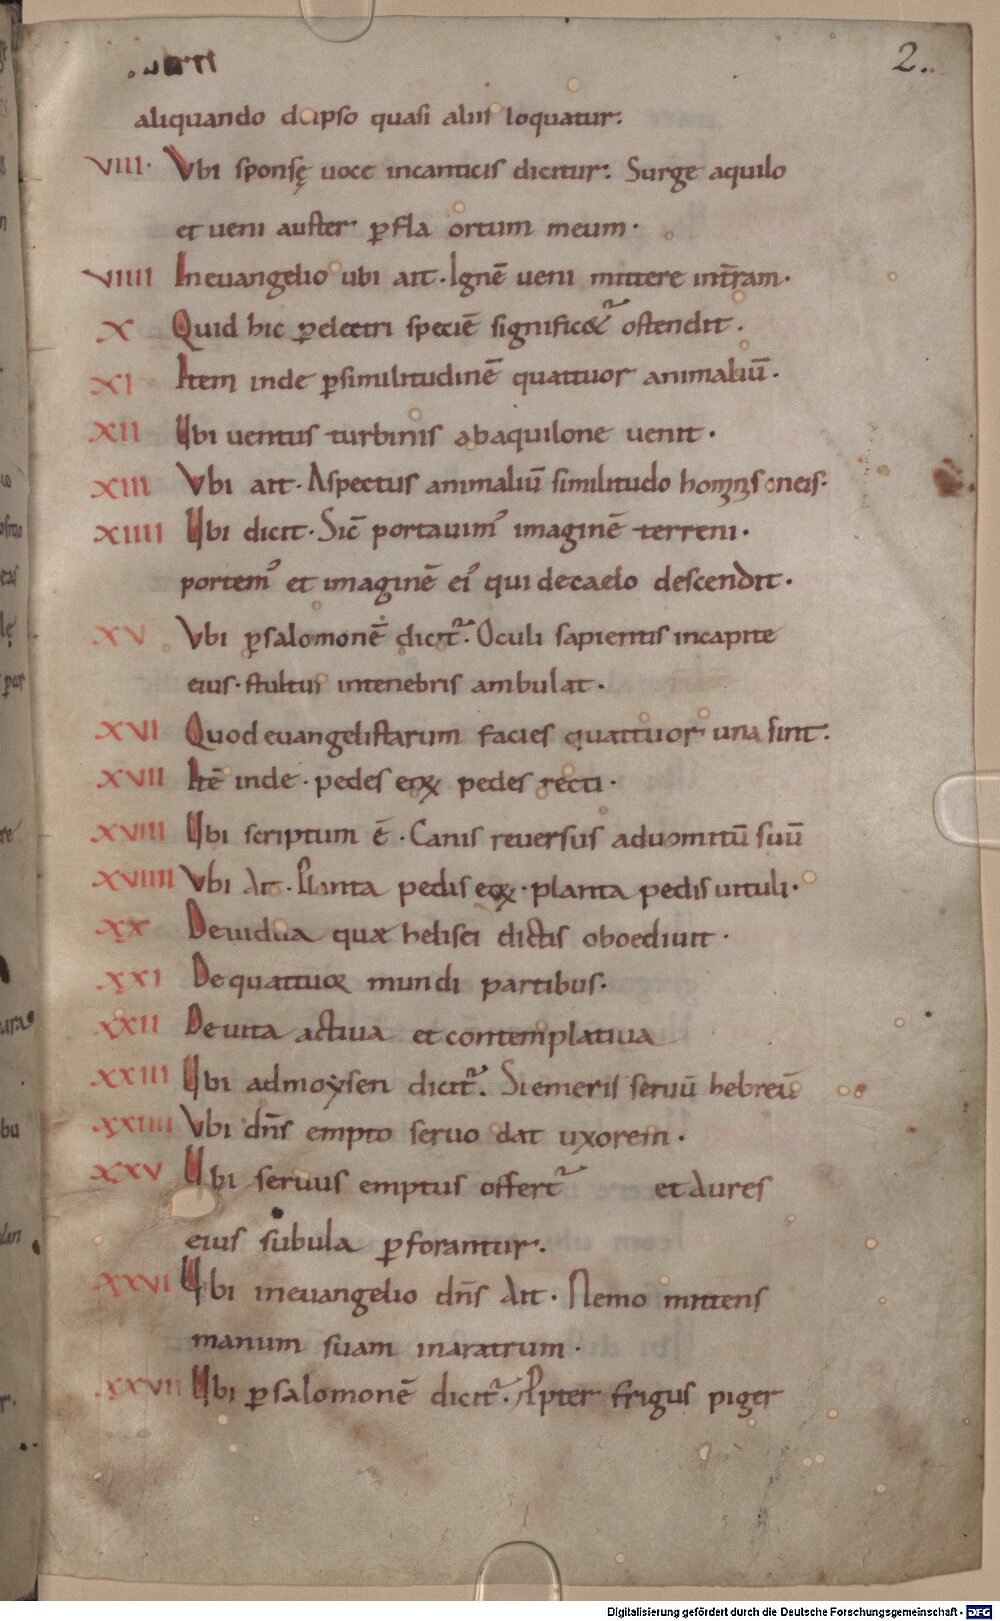 2.
aliquando de ipso quasi aliis loquatur:
VIII· Vbi sponsę uoce incanticis dicitur: Surge aquilo
et ueni auster ꝑfla ortum meum·
VIIII Ineuangelio ubi ait· Ignē ueni mittere int̄ram·
X Quid hic ꝑelectri speciē signific&ᷣ ostendit·
XI Item inde ꝑsimilitudinē quattuor animaliū·
XII Vbi uentus turbinis abaquilone uenit·
XIII Vbi ait· Aspectus animaliū similitudo
XIIII Vbi dicit· Sic̄ portauim᾽ imaginē terreni·
portem᾽ et imaginē ei᾽ qui decaelo descendit·
XV Vbi ꝑsalomonē dicit᷑· Oculi sapientis incapite
eius· stultus intenebris ambulat·
XVI Quod euangelistarum facies quattuor una sint·
XVII Itē inde· pedes eoꝝ pedes recti·
XVIII Vbi scriptum ē· Canis reuersus aduomitū suū
XVIIII Vbi Ait· Planta pedis eoꝝ· planta pedis uituli·
XX Deuidua quæ helisei dictis oboediuit·
XXI Dequattuor mundi partibus·
XXII Deuita actiua et contemplatiua
XXIII Vbi admoẏsen dicit᷑· Siemeris seruū hebreū
XXIIII Vbi dn̄s empto seruo dat uxorem·
XXV Vbi seruus emptus offert᷑ et Aures
eius subula ꝑforantur·
XXVI Vbi ineuangelio dn̄s Ait· Nemo mittens
manum suam inaratrum·
XXVII Vbi ꝑsalomonē dicit᷑· Ꝓpter frigus piger
Digitalisierung gefördert durch die Deutsche Forschungsgemeinschaft - DFG